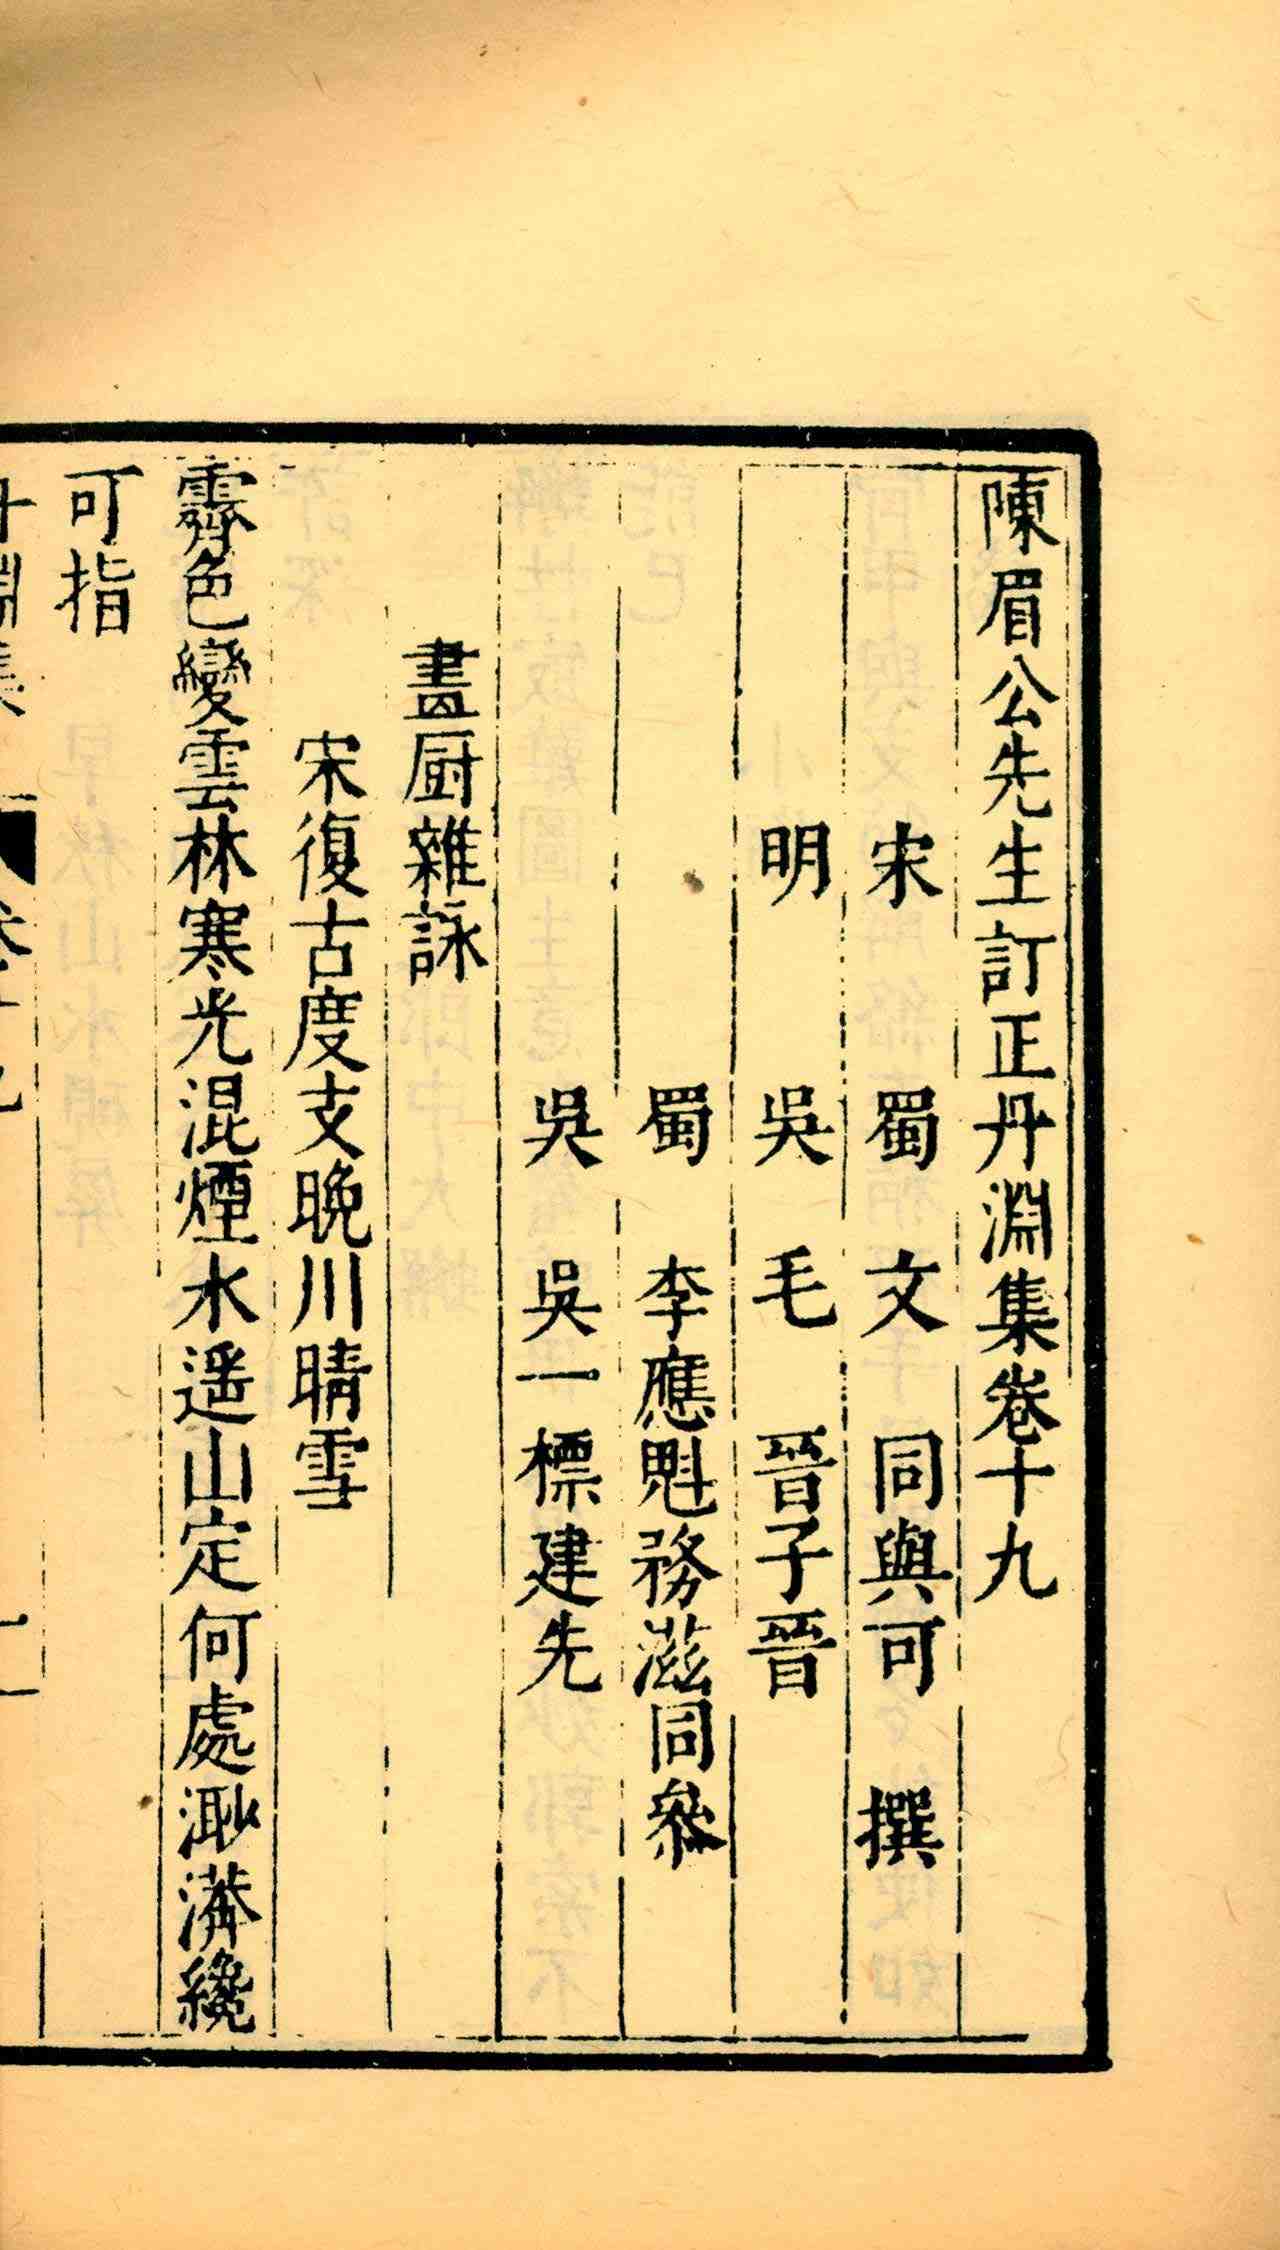 陳眉公先生訂正丹淵集卷十九
宋 蜀 文 同與可 撰
明 吳 毛 晉子晉
蜀 李應魁務滋同參
吳 吳一標建先
畫厨雜詠
宋復古度支晚川晴雪
霽色變雲林寒光混煙水遥山定何處渺漭纔
可指